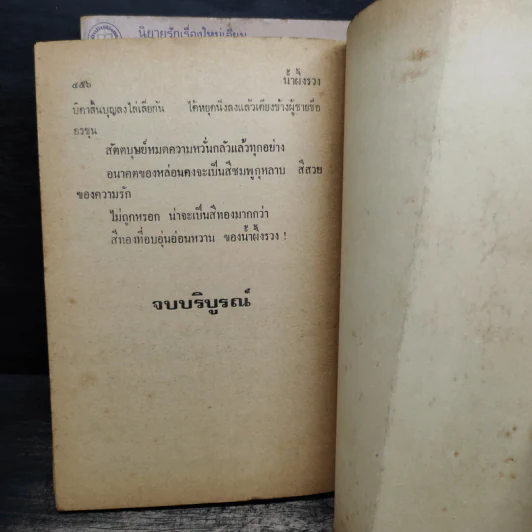 นิยายรักเรื่องใหม่เอี่ยม
๔๕๖ น้ำผึ้งรวง
บิดาสิ้นบุญลงไล่เลี่ยกัน ได้หยุดนิ่งลงแล้วเคียงข้างผู้ชายชื่อ
อรชุน
สัตตบุษย์หมดความหวั่นกลัวแล้วทุกอย่าง
อนาคตของหล่อนคงจะเป็นสีชมพูกุหลาบ สีสวย
ของความรัก
ไม่ถูกหรอก น่าจะเป็นสีทองมากกว่า
สีทองที่อบอุ่นอ่อนหวาน ของน้ำผึ้งรวง !
จบบริบูรณ์